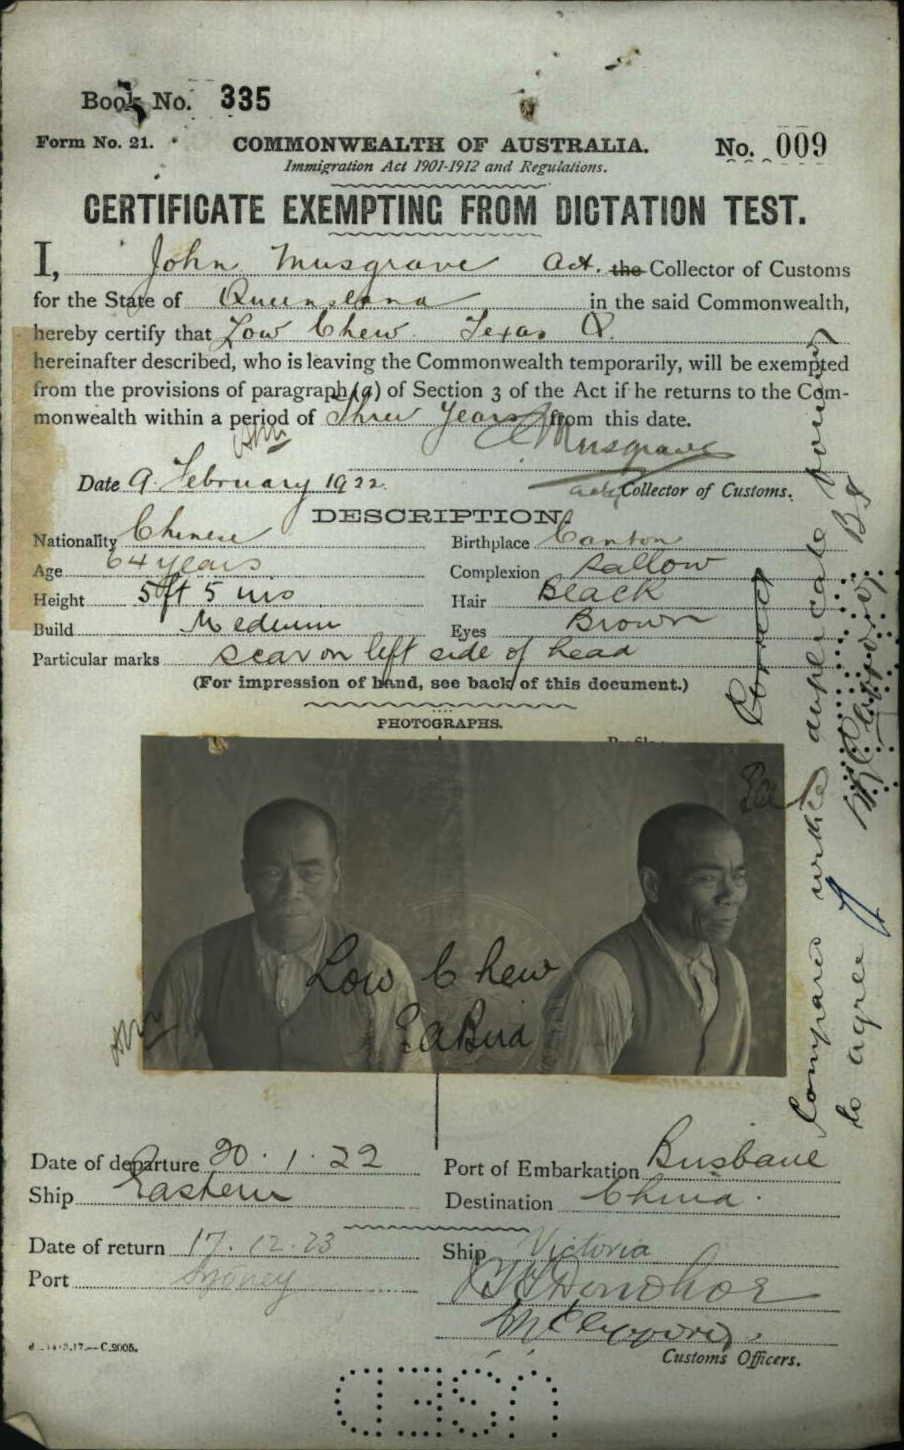 Book No. 335
Form No. 21. COMMONWEALTH OF AUSTRALIA. No. 009
Immigration Act 1901-1912 and Regulations.
CERTIFICATE EXEMPTING FROM DICTATION TEST.
I, John Musgrave Act. the Collector of Customs
for the State of Queensland in the said Commonwealth,
hereby certify that Low Chew. Texas Q.
hereinafter described, who is leaving the Commonwealth temporarily, will be exempted
from the provisions of paragraph (a) of Section 3 of the Act if he returns to the Com-
monwealth within a period of Three Years from this date.
Musgrave
Date 9 February 1922
Collector of Customs.
DESCRIPTION.
Nationality Chinese Birthplace Canton
Age 64 years Complexion Sallow
Height 5 ft 5 ins Hair Black
Build Medium Eyes Brown
Particular marks scar on left side of head
(For impression of hand, see back of this document.)
PHOTOGRAPHS.
Low Chew
EABird
Correct
Compared with duplicate found
to agree
Date of departure 20.1.22 Port of Embarkation Brisbane
Ship Eastern Destination China.
Date of return 17.12.23 Ship Victoria
Port Sydney
Donohoe
Customs Officers.
C.2005.